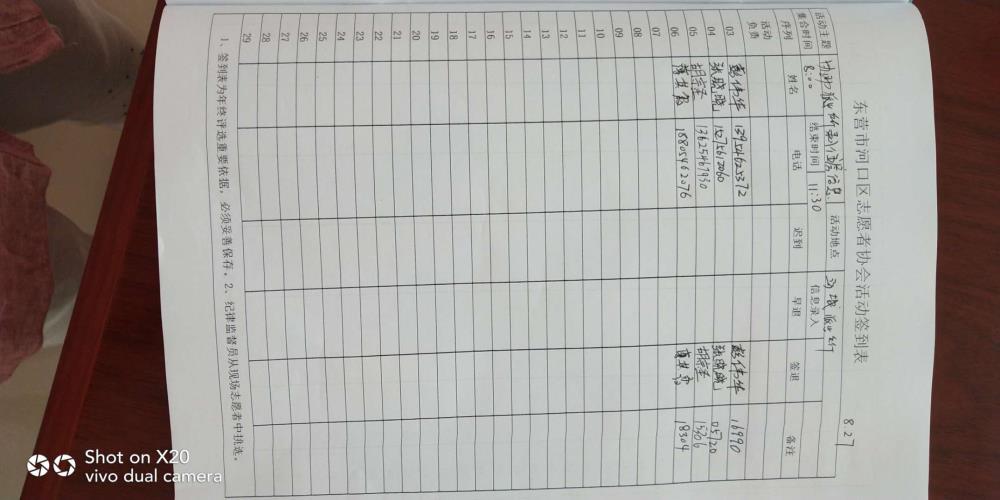 8.27
东营市河口区志愿者协会活动签到表
活动主题 协助派出所 活动地点 派出所
集合时间 8:00 结束时间 11:30 信息录入
序列 姓名 电话 迟到 早退 签退 备注
活动负责
03 彭伟华 13954625372 彭伟华 16990
04 张晓晓 15275612060 张晓晓 05720
05 胡宗圣 13625467930 胡宗圣 15206
06 18805462076 18304
07
08
09
10
11
12
13
14
15
16
17
18
19
20
21
22
23
24
25
26
27
28
29
1、签到表为年终评选重要依据,必须妥善保存。2、纪律监督员从现场志愿者中挑选。
Shot on X20
vivo dual camera